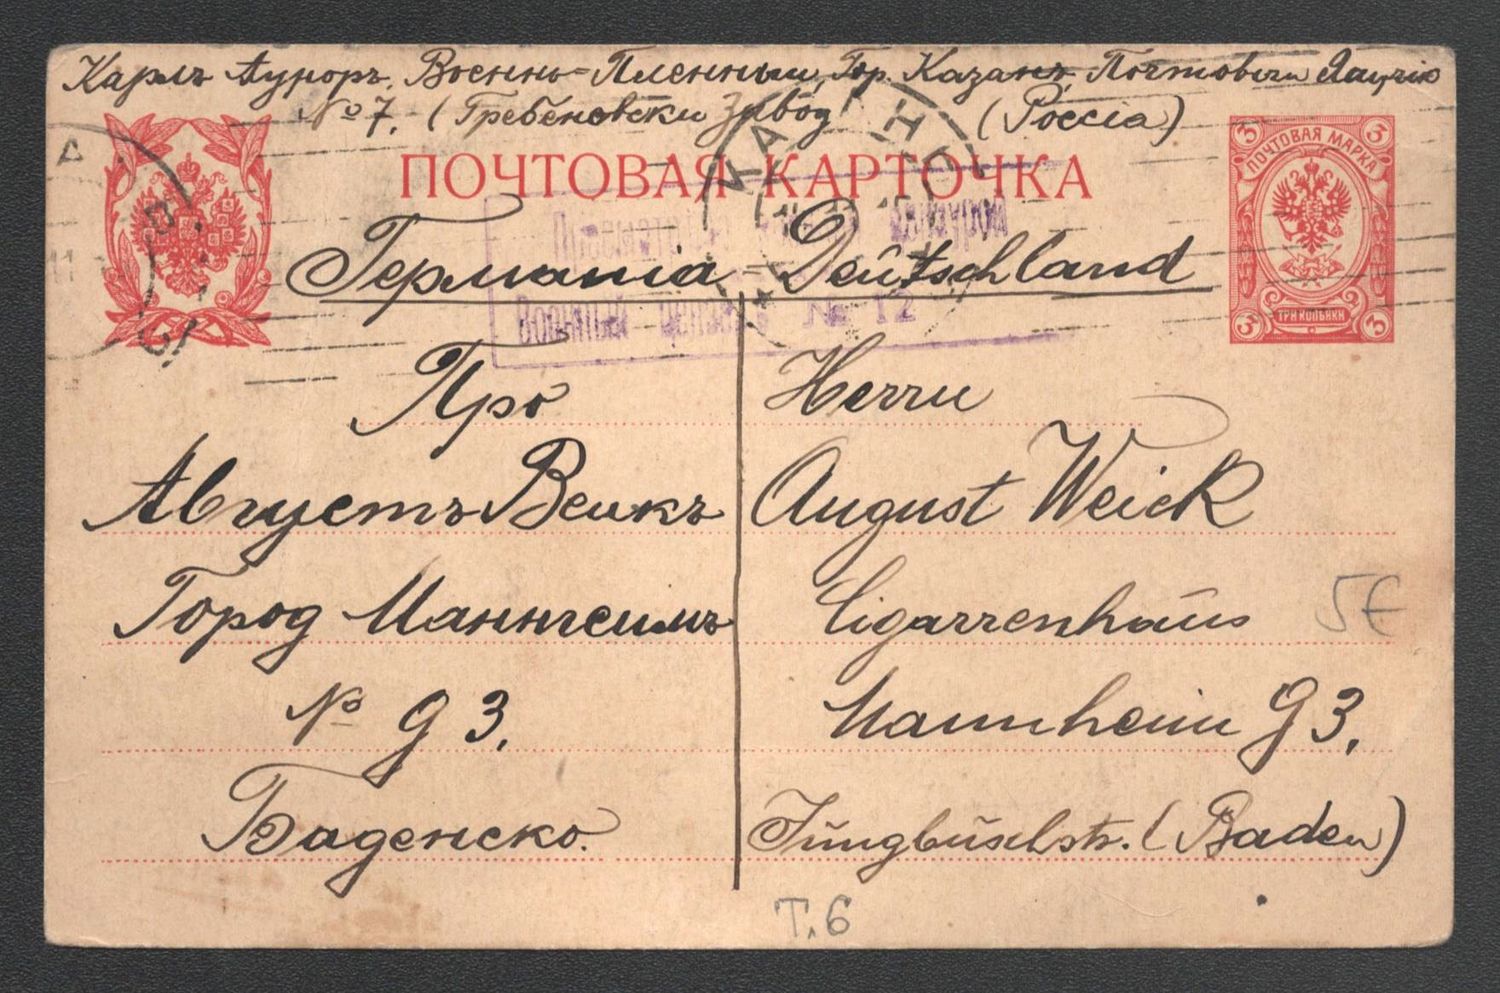 Карлъ Аурноръ, Военно-Пленный, Гор. Казанъ Почтовый Ящикъ
№ 7. (Гребеновски Зивод (Россіа)
ПОЧТОВАЯ КАРТОЧКА
3 3
ПОЧТОВАЯ МАРКА
ТРИ КОПѢЙКИ
3 3
КА Н
цензурой
Военный цензоръ № 12
Германіа = Deutschland
Про
Августъ Веикъ
Город Маннгеимъ
№ G 3.
Баденско.
Herrn
August Weick
Cigarrenhaus
Mannheim G 3,
Jungbuschstr. (Baden)
5E
T.6